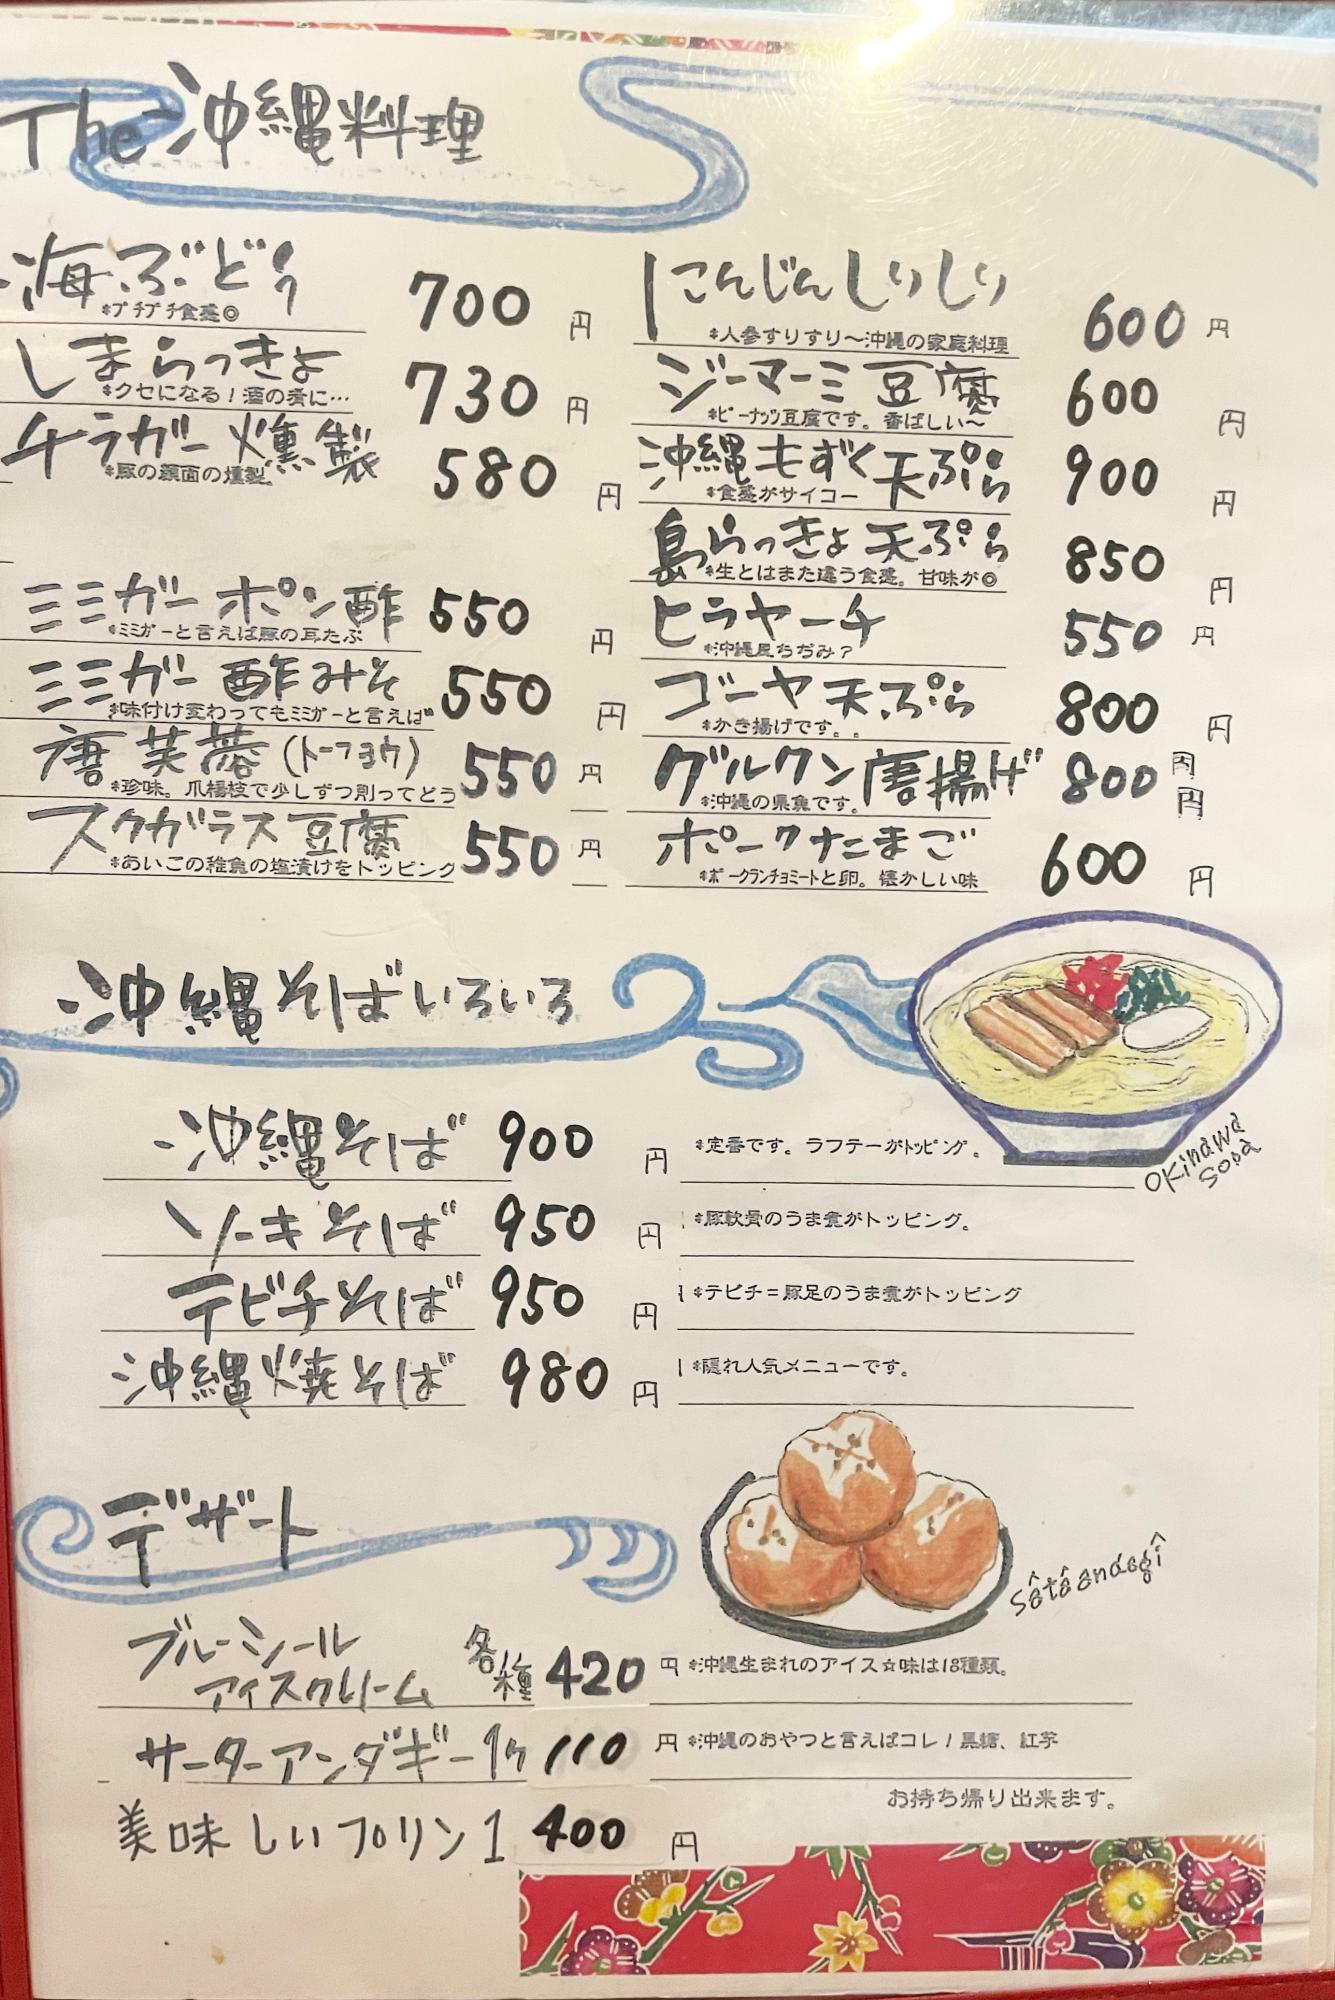 The 沖縄料理
海ぶどう 700円
*プチプチ食感◎
しまらっきょ 730円
*クセになる!酒の肴に…
チラガー燻製 580円
*豚の顔面の燻製
ミミガーポン酢 550円
*ミミガーと言えば豚の耳たぶ
ミミガー酢みそ 550円
*味付け変わってもミミガーと言えば
唐芙蓉(トーフヨウ) 550円
*珍味。爪楊枝で少しずつ削ってどう
スクガラス豆腐 550円
*あいごの稚魚の塩漬けをトッピング
にんじんしりしり 600円
*人参すりすり～沖縄の家庭料理
ジーマーミ豆腐 600円
*ピーナッツ豆腐です。香ばしい～
沖縄もずく天ぷら 900円
*食感がサイコー
島らっきょ天ぷら 850円
*生とはまた違う食感。甘味が◎
ヒラヤーチ 550円
*沖縄風ちぢみ?
ゴーヤ天ぷら 800円
*かき揚げです。。
グルクン唐揚げ 800円
円
*沖縄の県魚です。
ポークたまご 600円
*ポークランチョミートと卵。懐かしい味
沖縄そばいろいろ
沖縄そば 900円 *定番です。ラフテーがトッピング。
ソーキそば 950円 *豚軟骨のうま煮がトッピング。
テビチそば 950円 *テビチ=豚足のうま煮がトッピング
沖縄焼そば 980円 *隠れ人気メニューです。
OKiNAWA
SOBA
デザート
ブルーシール
アイスクリーム 各種 420円 *沖縄生まれのアイス☆味は18種類。
サーターアンダギー1ヶ 110円 *沖縄のおやつと言えばコレ!黒糖、紅芋
お持ち帰り出来ます。
美味しいプリン1 400円
Sâtâandagî